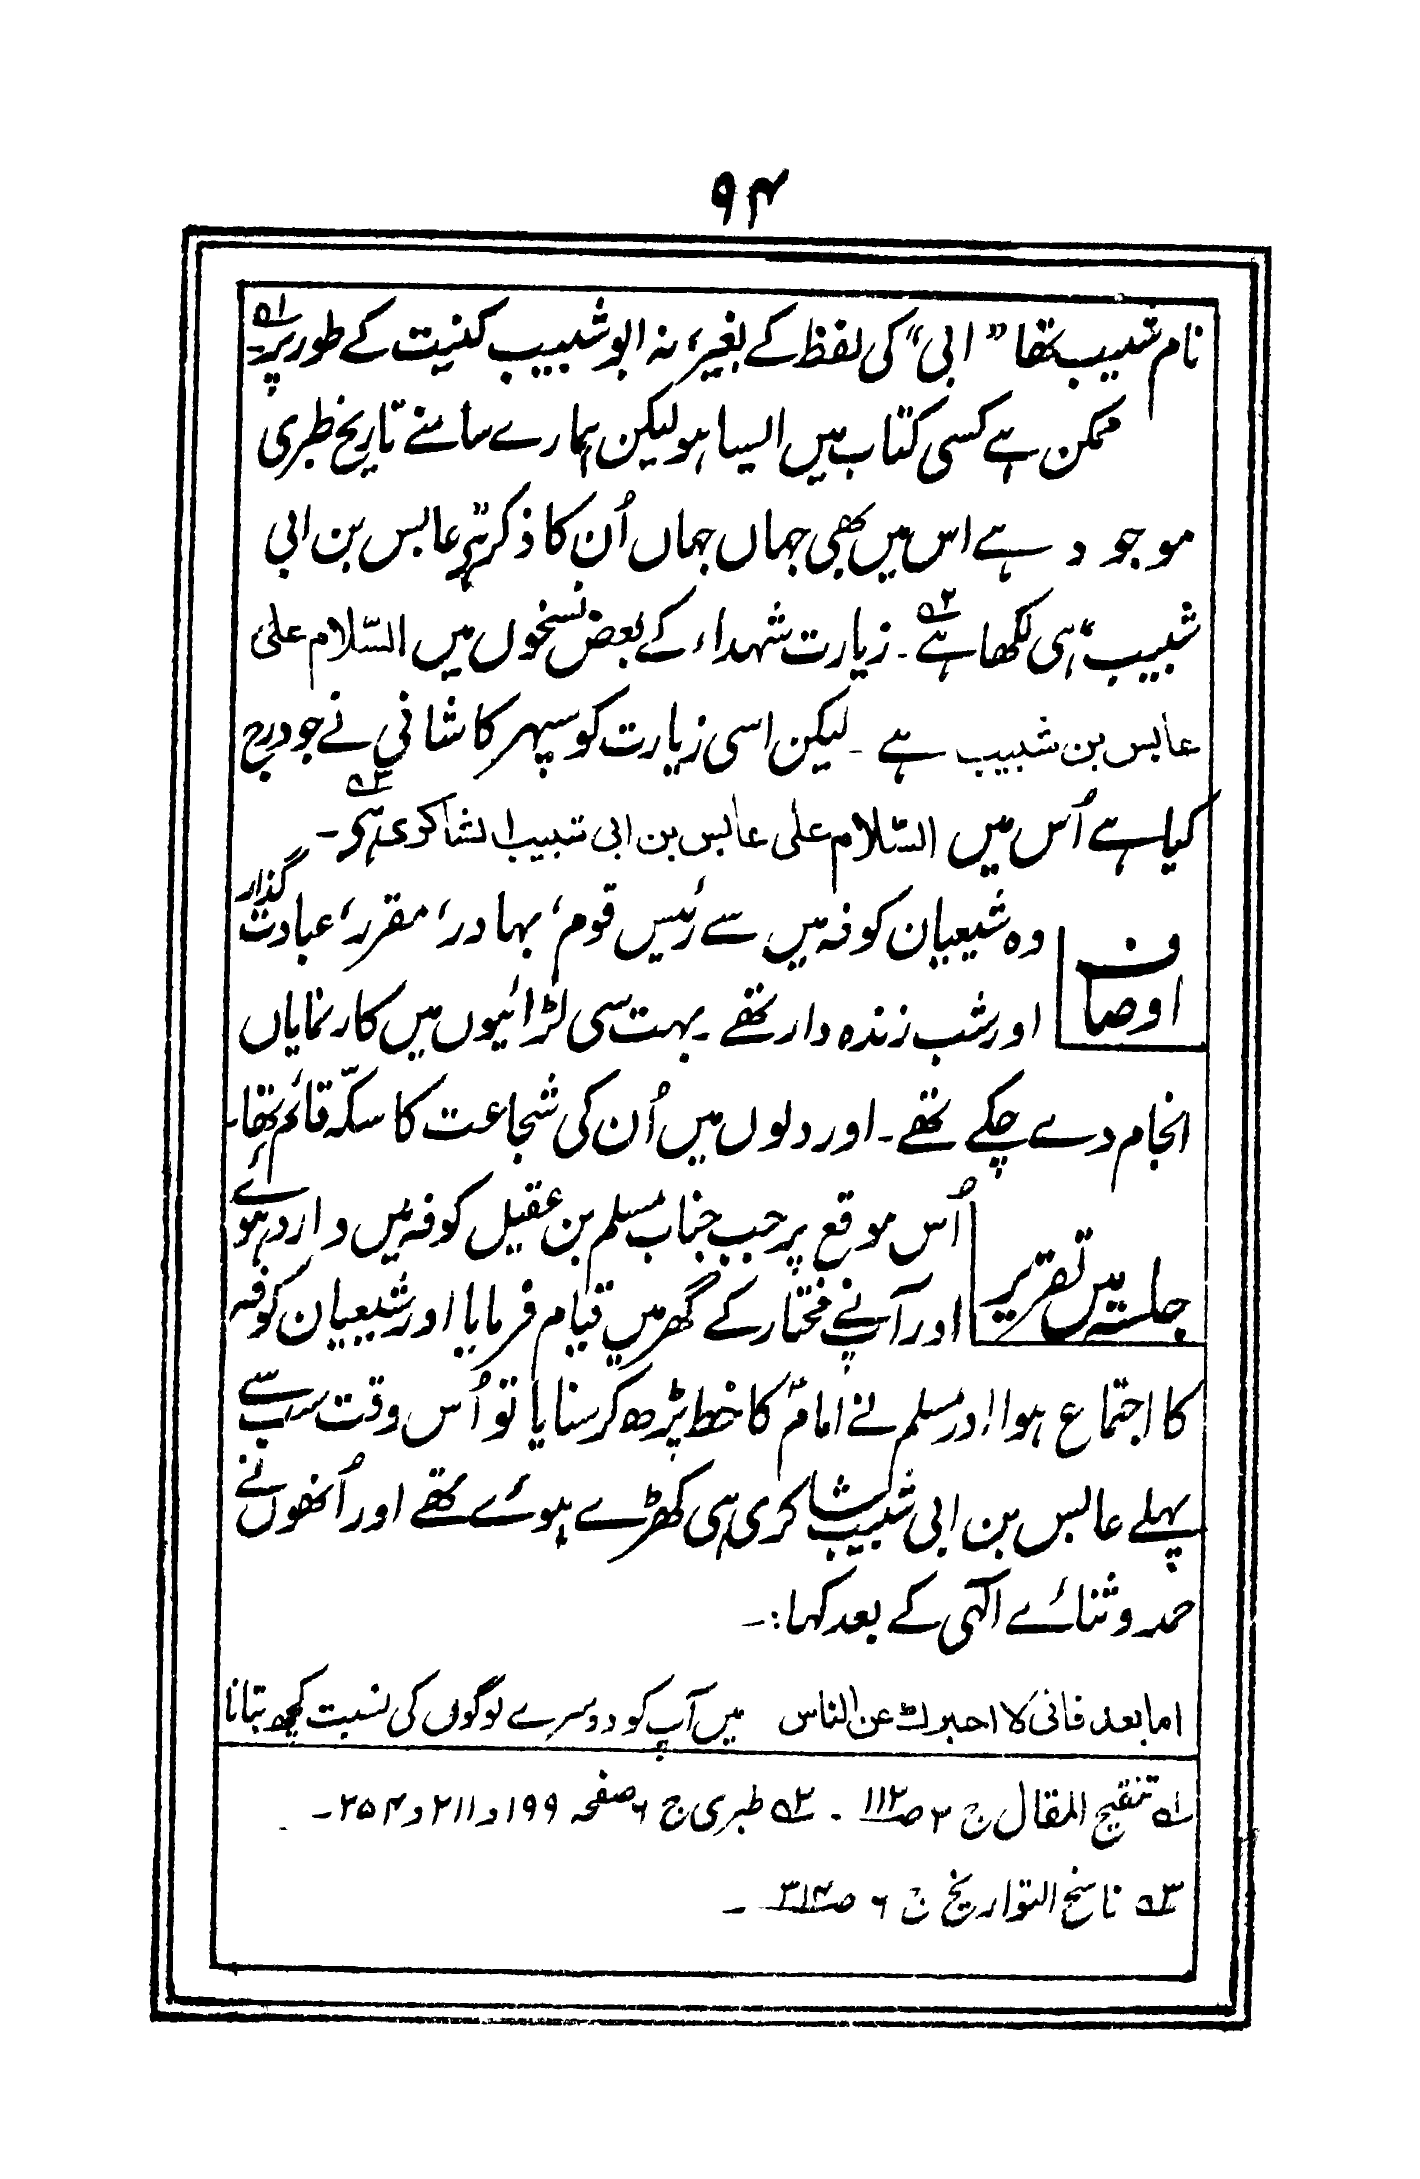 ۹۴
نام شبیب تھا ”ابی“ کی لفظ کے بغیر، نہ ابو شبیب کنیت کے طور پر۔ ۱؎
ممکن ہے کسی کتاب میں ایسا ہو لیکن ہمارے سامنے تاریخ طبری
موجود ہے اس میں بھی جہاں جہاں اُن کا ذکر ہے عابس بن ابی
شبیب، ہی لکھا ہے ۲؎۔ زیارت شہداء کے بعض نسخوں میں السّلام علیٰ
عابس بن شبیب ہے ۔ لیکن اسی زیارت کو سپہر کاشانی نے جو درج
کیا ہے اُس میں السّلام علی عابس بن ابی شبیب الشاکری ہے ۳؎ ۔
اوصاف
وہ شیعیان کوفہ میں سے رئیس قوم، بہادر، مقرر، عبادت گذار
اور شب زندہ دار تھے ۔ بہت سی لڑائیوں میں کار نمایاں
انجام دے چکے تھے ۔ اور دلوں میں اُن کی شجاعت کا سکّہ قائم تھا۔
جلسہ میں تقریر
اُس موقع پر جب جناب مسلم بن عقیل کوفہ میں وارد ہوئے
اور آپ نے مختار کے گھر میں قیام فرمایا اور شیعیان کوفہ
کا اجتماع ہوا اور مسلم نے امامؑ کا خط پڑھ کر سنایا تو اُس وقت سب سے
پہلے عابس بن ابی شبیب شاکری ہی کھڑے ہوئے تھے اور اُنھوں نے
حمد و ثنائے الٰہی کے بعد کہا:۔
اما بعد فانی لا اخبرک عن الناس میں آپ کو دوسرے لوگوں کی نسبت کچھ بتانا
۱؎ تنقیح المقال ج ۳ ص ۱۱۲ ۔ ۲؎ طبری ج ۶ صفحہ ۱۹۹ و ۲۱۱ و ۲۵۴ ۔
۳؎ ناسخ التواریخ ج ۶ ص ۳۱۴ ۔